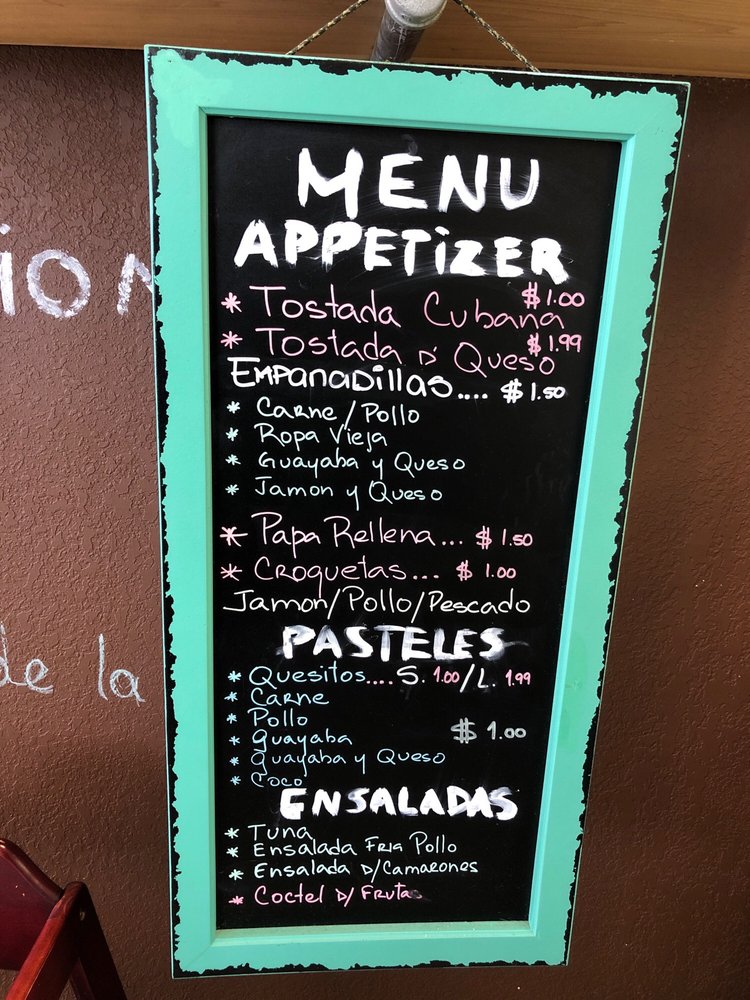 MENU
APPETIZER
* Tostada Cubana $1.00
* Tostada D' Queso $1.99
Empanadillas.... $1.50
* Carne/Pollo
* Ropa Vieja
* Guayaba y Queso
* Jamon y Queso
* Papa Rellena... $1.50
* Croquetas... $1.00
Jamon/Pollo/Pescado
PASTELES
* Quesitos.... S. 1.00/L. 1.99
* Carne
* Pollo
* Guayaba $1.00
* Guayaba y Queso
* Coco
ENSALADAS
* Tuna
* Ensalada Fria Pollo
* Ensalada D/Camarones
* Coctel D/ Frutas
de la